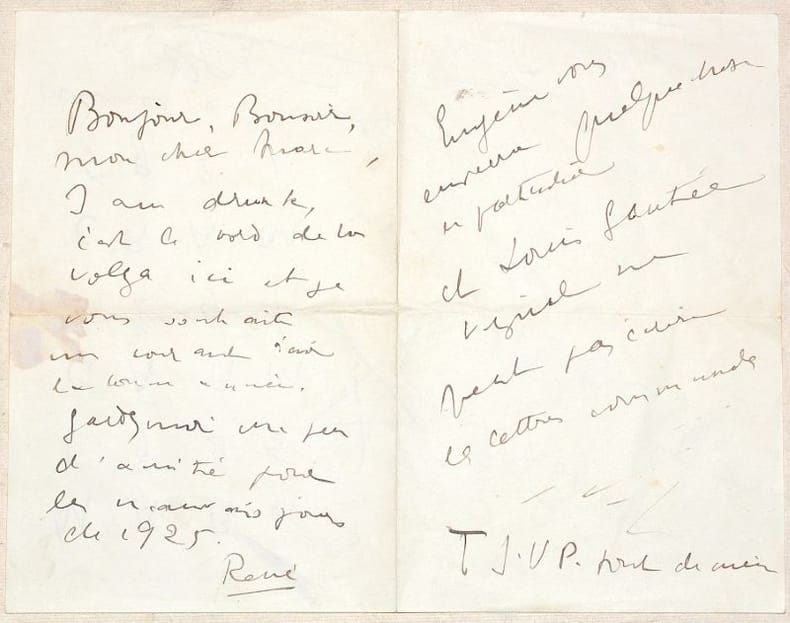 Bonjour, Bonsoir,
mon cher Marc,
I am drunk,
c'est le bord de la
volga ici et je
vous souhaite
un courant d'air
la bonne année.
Gardez moi un peu
d'amitié pour
les mauvais jours
de 1925.
René
Eugène vous
enverra quelque chose
en particulier
et Louis
ne
veut pas écrire
de lettres communes
T.S.V.P. tout de même